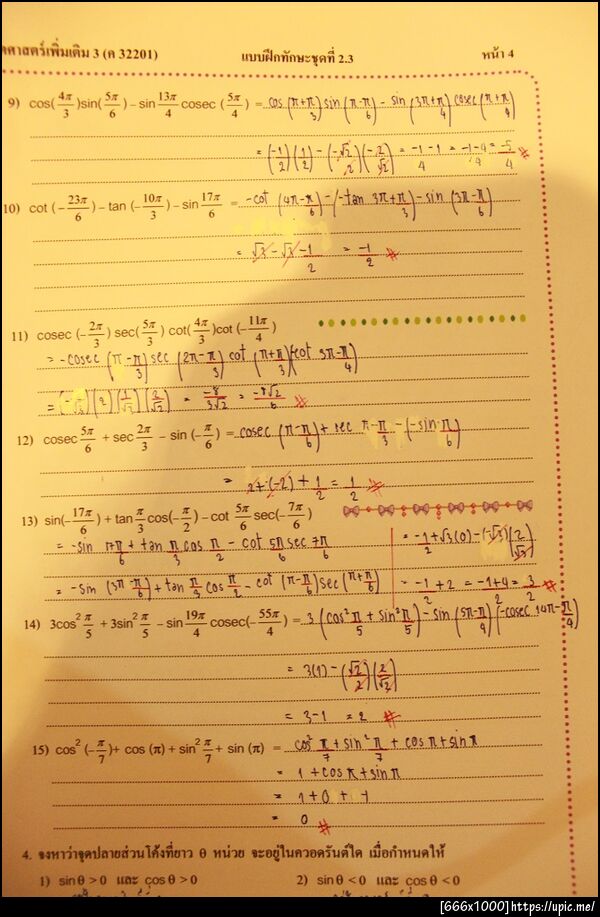 ตศาสตร์เพิ่มเติม 3 (ค 32201) แบบฝึกทักษะชุดที่ 2.3 หน้า 4
9) cos(4π/3)sin(5π/6) – sin 13π/4 cosec (5π/4) = cos(π+π/3) sin(π-π/6) - sin(3π+π/4) cosec(π+π/4)
= (-1/2)(1/2) - (-√2/2)(-2/√2) = -1/4 - 1 = -1-4/4 = -5/4 #
10) cot (–23π/6) – tan (–10π/3) – sin 17π/6 = -cot (4π-π/6) - (-tan 3π+π/3) - sin (3π-π/6)
= √3 - √3 - 1/2 = -1/2 #
11) cosec (–2π/3) sec(5π/3) cot(4π/3)cot(–11π/4)
= -cosec (π-π/3) sec (2π-π/3) cot (π+π/3) cot 3π-π/4)
= -8/3√2 = -8√2/6 #
12) cosec 5π/6 + sec 2π/3 – sin (–π/6) = cosec (π-π/6) + sec π-π/3 - (-sin π/6)
= 2+(-2) + 1/2 = 1/2 #
13) sin(–17π/6) + tan π/3 cos(–π/2) – cot 5π/6 sec(–7π/6)
= -sin 17π/6 + tan π/3 cos π/2 - cot 5π/6 sec 7π/6 = -1/2 + √3(0) - (-√3)(2/√3)
= -sin (3π-π/6) + tan π/3 cos π/2 - cot (π-π/6) sec (π+π/6) = -1/2 + 2 = -1+4/2 = 3/2 #
14) 3cos² π/5 + 3sin² π/5 – sin 19π/4 cosec(–55π/4) = 3 (cos² π/5 + sin² π/5) - sin (5π-π/4) (-cosec 14π-π/4)
= 3(1) - (√2/2)(2/√2)
= 3-1 = 2 #
15) cos² (–π/7)+ cos (π) + sin² π/7 + sin (π) = cos² π/7 + sin² π/7 + cos π + sin π
= 1 + cos π + sin π
= 1 + 0 + -1
= 0 #
4. จงหาว่าจุดปลายส่วนโค้งที่ยาว θ หน่วย จะอยู่ในควอดรันต์ใด เมื่อกำหนดให้
1) sin θ > 0 และ cos θ > 0 2) sin θ < 0 และ cos θ < 0
[666x1000]https://upic.me/